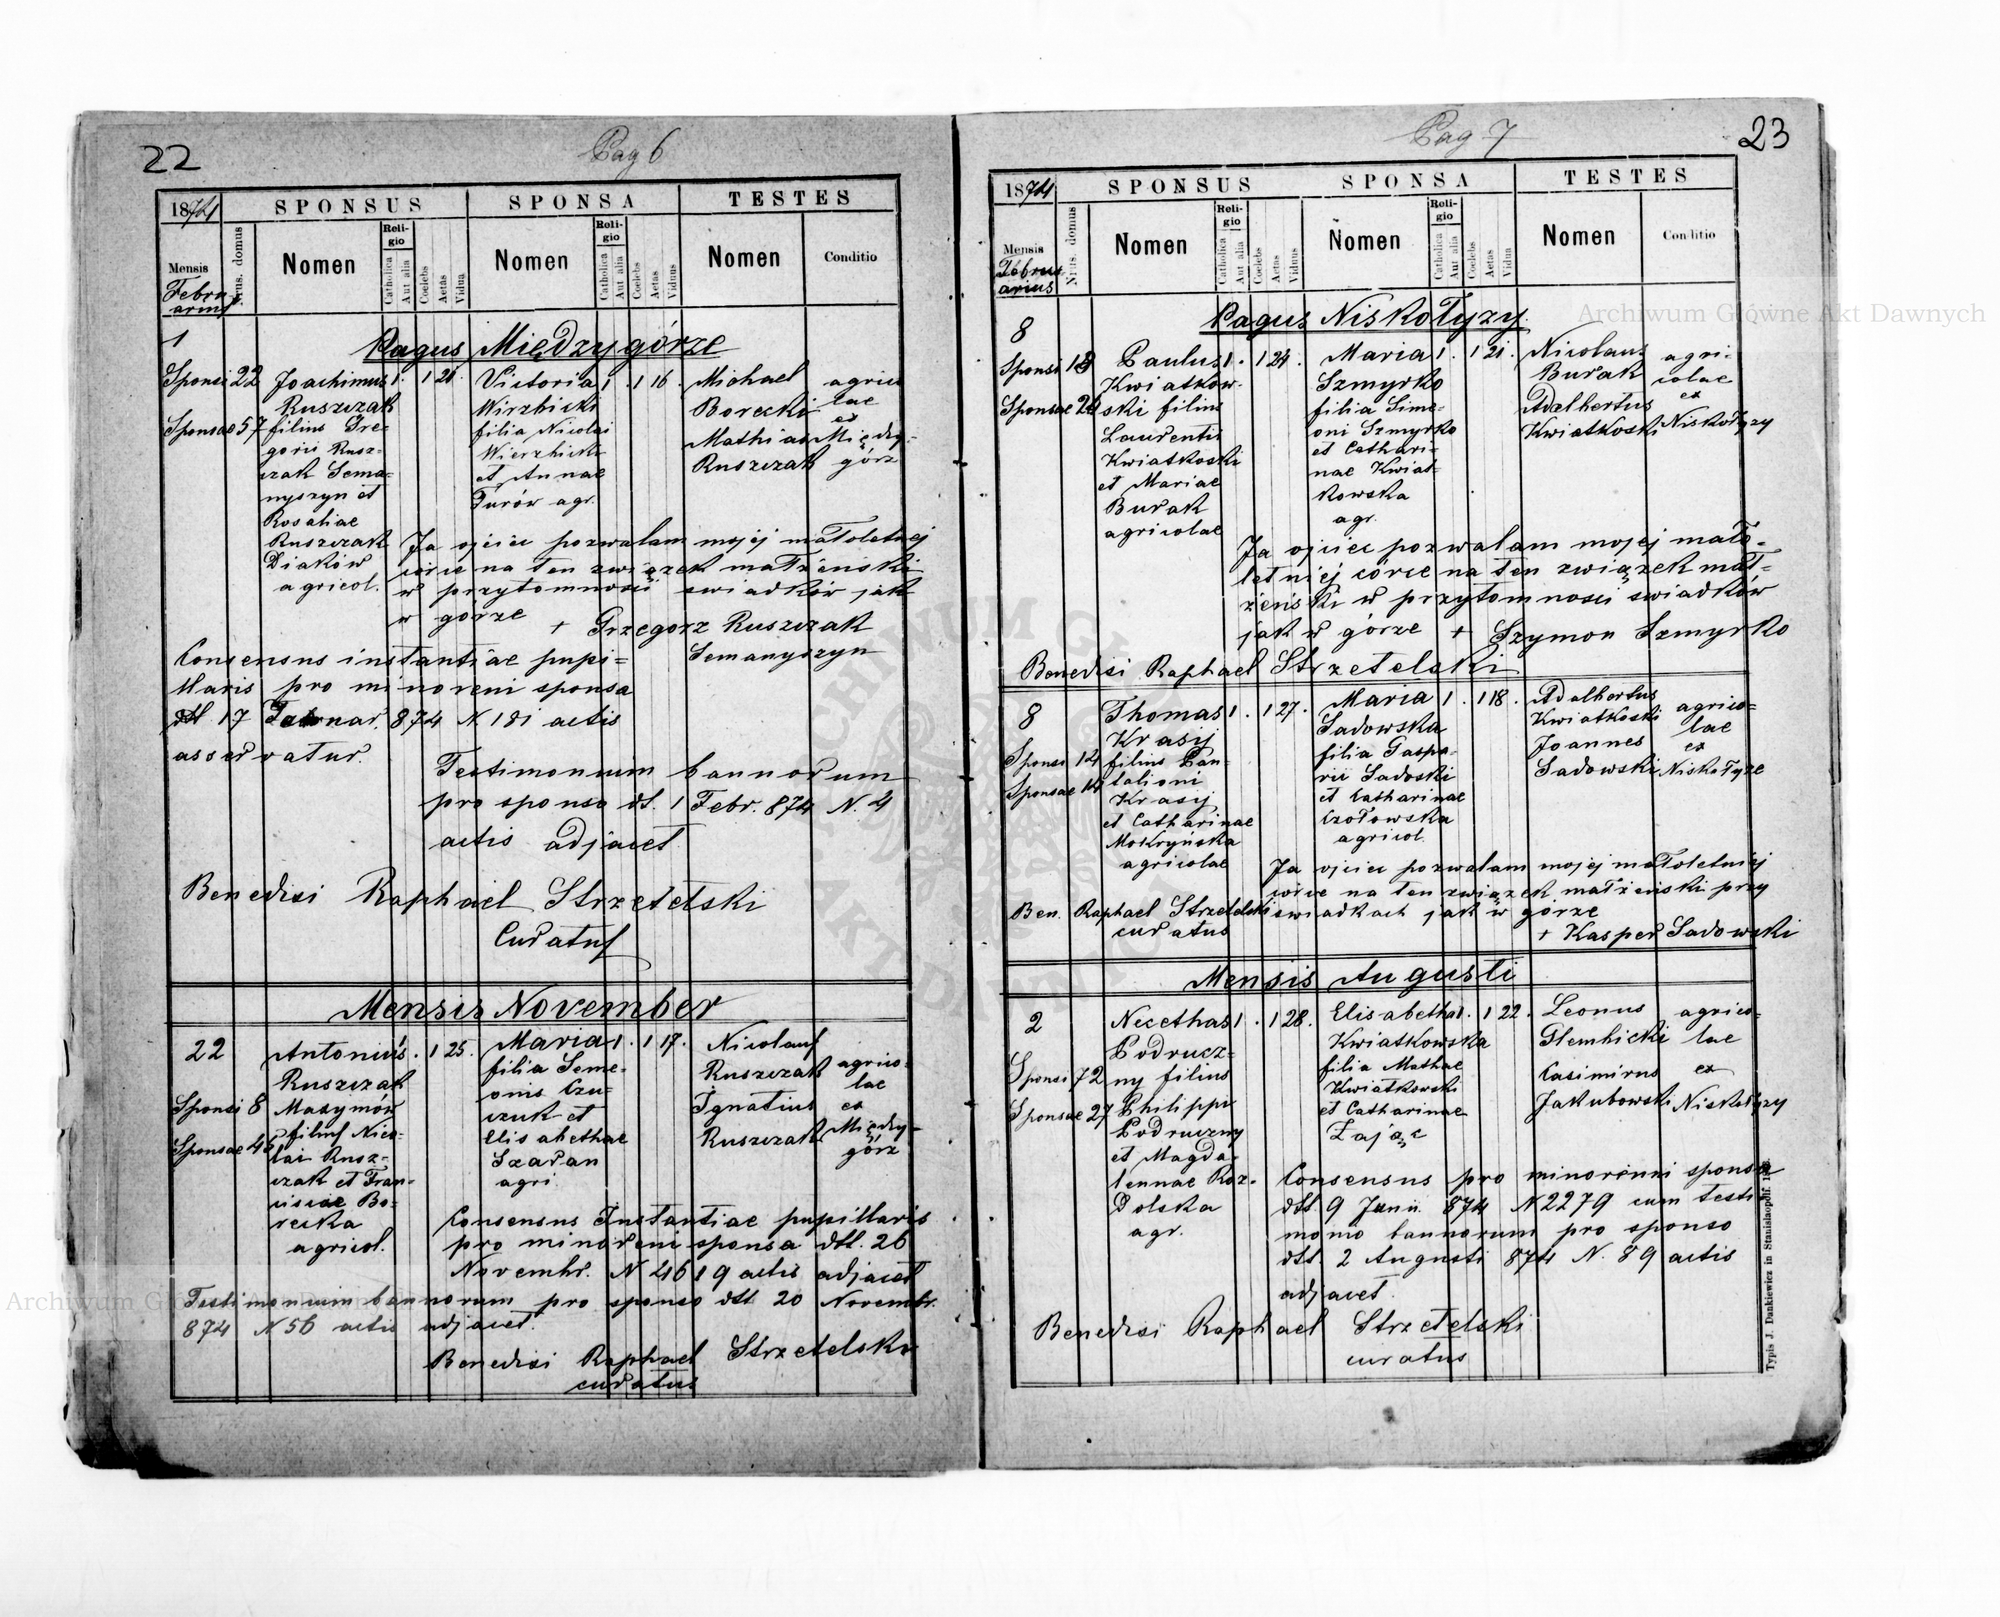 22
Pag 6
1874
SPONSUS
SPONSA
TESTES
Mensis
Februarius
Nrus. domus
Nomen
Religio
Catholica
Aut alia
Coelebs
Aetas
Vidua
Nomen
Religio
Catholica
Aut alia
Coelebs
Aetas
Viduus
Nomen
Conditio
1
Pagus Międzygórze
Sponsi 22
Sponsae 57
Joachimus
Ruszczak
filius Gre-
gorii Rusz-
czak Sema-
nyszyn et
Rosaliae
Ruszczak
Diaków
agricol.
1 . 1 26 .
Victoria
Wirzbicki
filia Nicolai
Wierzbicki
et Annae
Furów agr.
1 . 1 16 .
Michael
Borecki
Mathias
Ruszczak
agrico
lae
ex
Między-
górz
Ja ojciec pozwalam mojej małoletniej
córce na ten związek małżeński
w przytomności swiadków jak
w górze + Grzegorz Ruszczak
Semanyszyn
Consensus instantiae pupi=
llaris pro minoreni sponsa
dtt. 17 Februar. 874 N. 181 actis
asservatur.
Testimonium bannorum
pro sponso dt. 1 Febr. 874 N. 4
actis adjacet
Benedixi Raphael Strzetelski
Curatus
Mensis November
22
Sponsi 8
Sponsae 45
Antonius
Ruszczak
Maxymów
filius Nico-
lai Rusz-
czak et Fran-
ciscae Bo-
recka
agricol.
1 . 1 25 .
Maria
filia Seme-
onis Czu-
czuk et
Elisabethae
Szaran
agri.
1 . 1 17 .
Nicolaus
Ruszczak
Ignatius
Ruszczak
agrico-
lae
ex
Między-
górz
Consensus Instantiae pupillaris
pro minoreni sponsa dtt. 26
Novembr. N 4619 actis adjacet
Testimonium bannorum pro sponso dtt 20 Novembr.
874 N 56 actis adjacet.
Benedixi Raphael Strzetelski
curatus
23
Pag 7
1874
SPONSUS
SPONSA
TESTES
Mensis
Februarius
Nrus. domus
Nomen
Religio
Catholica
Aut alia
Coelebs
Aetas
Viduus
Nomen
Religio
Catholica
Aut alia
Coelebs
Aetas
Vidua
Nomen
Conditio
Pagus Niskołyzy
8
Sponsi 18
Sponsae 24
Paulus
Kwiatkow-
ski filius
Laurentii
Kwiatkoski
et Mariae
Burak
agricolae
1 . 1 24 .
Maria
Szmyrko
filia Sime-
oni Szmyrko
et Cathari-
nae Kwiat-
kowska
agr.
1 . 1 21 .
Nicolaus
Burak
Adalbertus
Kwiatkoski
agri-
colae
ex
Niskołyzy
Ja ojciec pozwalam mojej mało-
letniej córce na ten związek mał-
żeński w przytomnosci swiadków
jak w górze + Szymon Szmyrko
Benedixi Raphael Strzetelski
8
Sponsi 14
Sponsae 14
Thomas
Krasij
filius Pan-
talioni
Krasij
et Catharinae
Mokryńska
agricolae
1 . 1 27 .
Maria
Sadowska
filia Gaspa-
rii Sadoski
et Catharinae
Czołowska
agricol.
1 . 1 18 .
Adalbertus
Kwiatkoski
Joannes
Sadowski
agrico-
lae
ex
Niskołyze
Ja ojciec pozwalam mojej małoletniej
córce na ten związek małżeński przy
swiadkach jak w górze
+ Kasper Sadowski
Ben. Raphael Strzetelski
curatus
Mensis Augusti
2
Sponsi 72
Sponsae 27
Necethas
Podrucz-
ny filius
Philippi
Podruczny
et Magda-
lennae Roz-
dolska
agr.
1 . 1 28 .
Elisabetha
Kwiatkowska
filia Mathae
Kwiatkowski
et Catharinae
Zając
1 . 1 22 .
Leonus
Glembicki
Casimirus
Jakubowski
agrico-
lae
ex
Niskołyzy
Consensus pro minorenni sponsa
dtt. 9 Junii 874 N 2279 cum testi
monio bannorum pro sponso
dtt. 2 Augusti 874 N. 89 actis
adjacet.
Benedixi Raphael Strzetelski
curatus
Typis J. Dankiewicz in Stanislaopoli.
Archiwum Główne Akt Dawnych